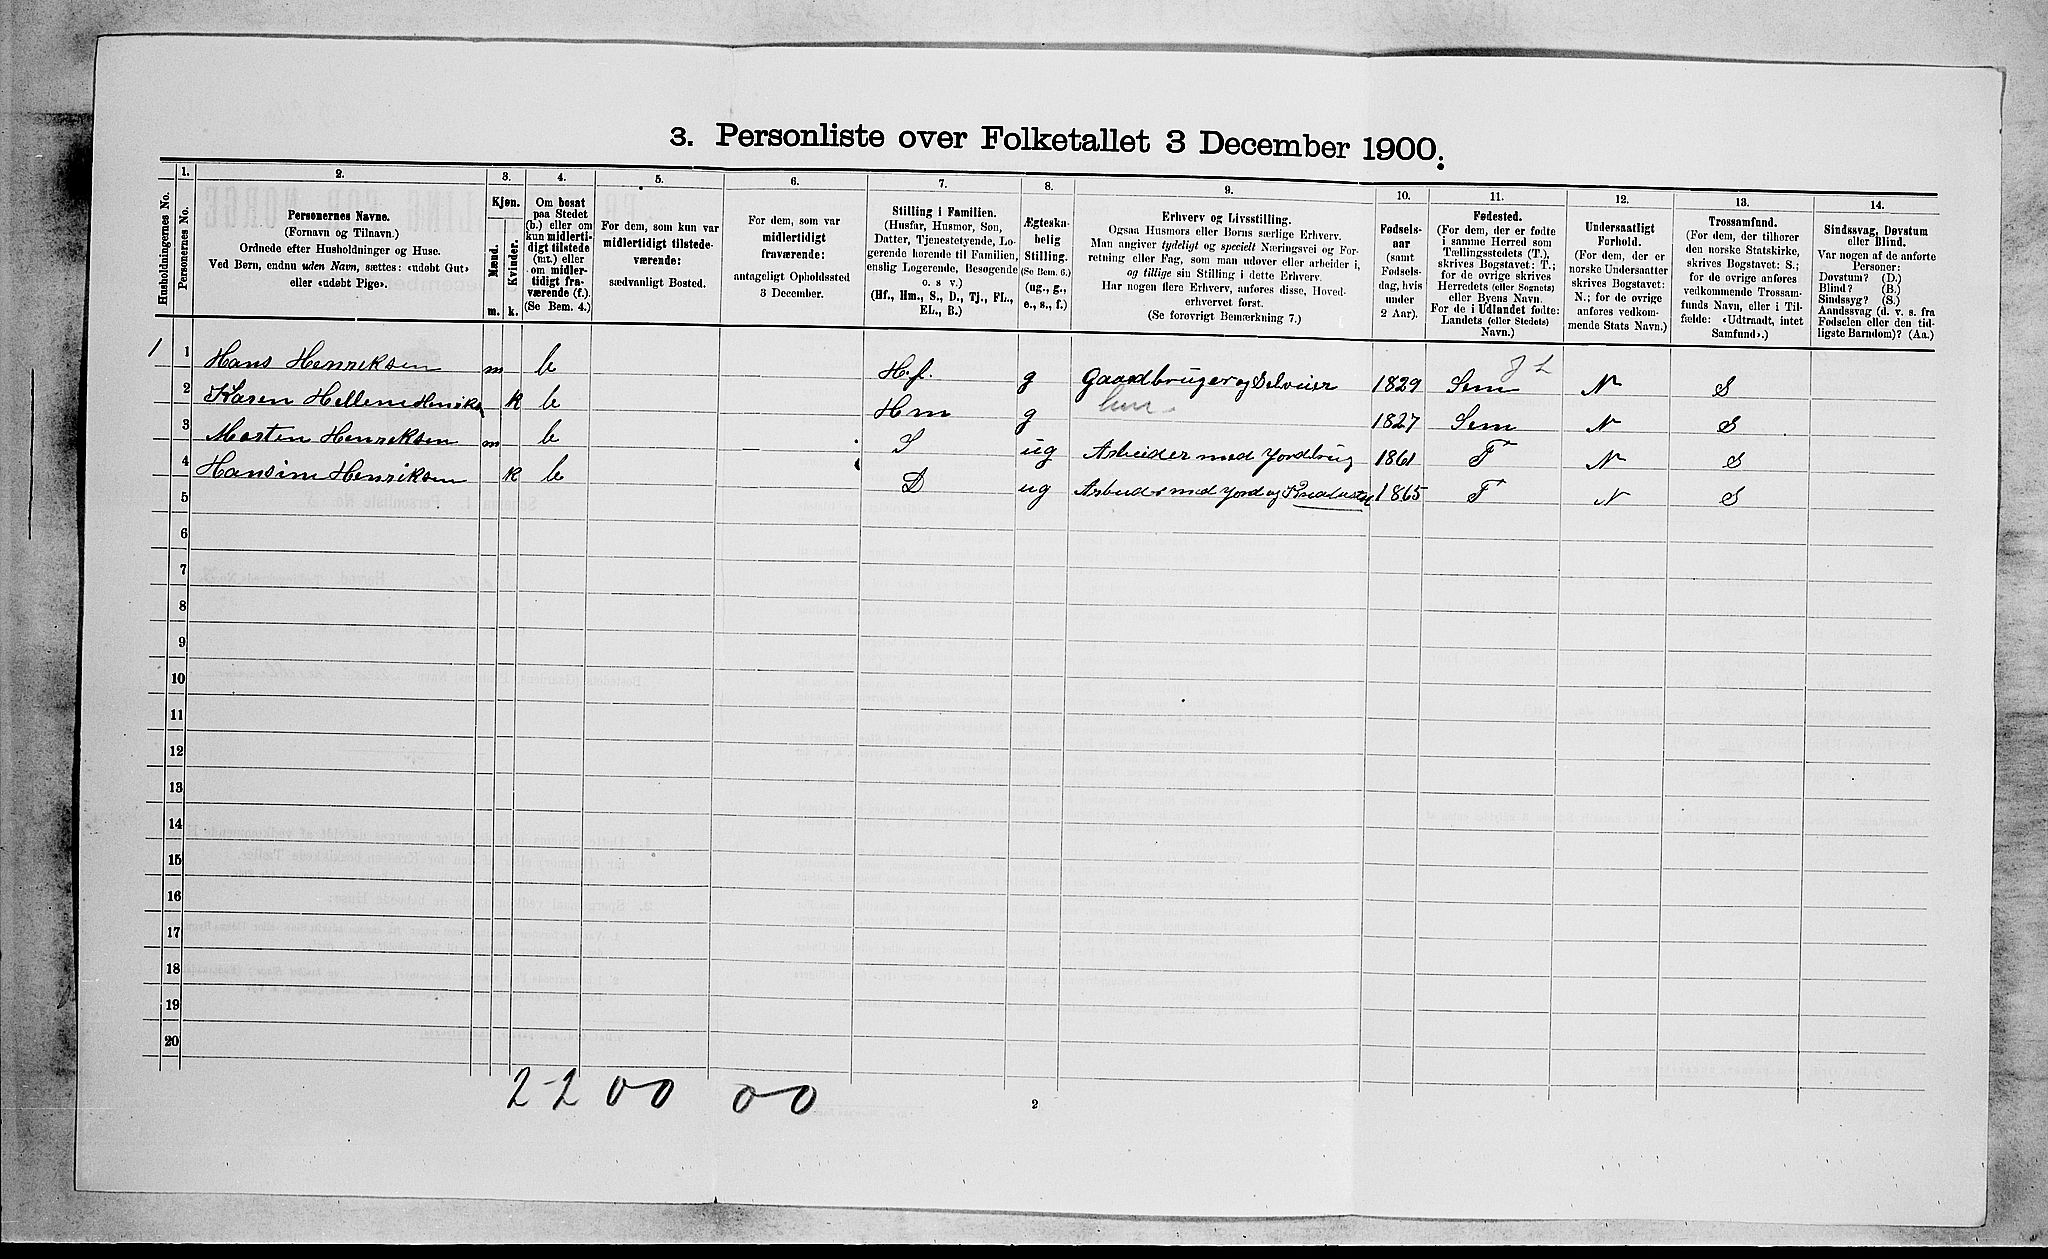 3. Personliste over Folketallet 3 December 1900.
Husholdningernes No.
1.
Personernes No.
2.
Personernes Navne.
(Fornavn og Tilnavn.)
Ordnede efter Husholdninger og Huse.
Ved Børn, endnu uden Navn, sættes: «udøbt Gut»
eller «udøbt Pige».
3.
Kjøn.
Mænd.
Kvinder.
m. k.
4.
Om bosat
paa Stedet
(b.) eller om
kun midlerti-
digt tilstede
(mt.) eller
om midler-
tidigt fra-
værende (f.).
(Se Bem. 4.)
5.
For dem, som kun var
midlertidigt tilstede-
værende:
sædvanligt Bosted.
6.
For dem, som var
midlertidigt
fraværende:
antageligt Opholdssted
3 December.
7.
Stilling i Familien.
(Husfar, Husmor, Søn,
Datter, Tjenestetyende, Lo-
gerende hørende til Familien,
enslig Logerende, Besøgende
o. s v.)
(Hf., Hm., S., D., Tj., FL.,
EL., B.)
8.
Ægteska-
belig
Stilling.
(Se Bem. 6.)
(ug., g.,
e., s., f.)
9.
Erhverv og Livsstilling.
Ogsaa Husmors eller Børns særlige Erhverv.
Man angiver tydeligt og specielt Næringsvei og For-
retning eller Fag, som man udøver eller arbeider i,
og tillige sin Stilling i dette Erhverv.
Har nogen flere Erhverv, anføres disse, Hoved-
erhvervet først.
(Se forøvrigt Bemærkning 7.)
10.
Fødsels-
aar
(samt
Fødsels-
dag, hvis
under
2 Aar).
11.
Fødested.
(For dem, der er fødte
i samme Herred som
Tællingsstedets (T.),
skrives Bogstavet: T.;
for de øvrige skrives
Herredets (eller Sognets)
eller Byens Navn.
For de i Udlandet fødte:
Landets (eller Stedets)
Navn.)
12.
Undersaatligt
Forhold.
(For dem, der er
norske Undersaatter
skrives Bogstavet:
N.; for de øvrige
anføres vedkom-
mende Stats Navn.)
13.
Trossamfund.
(For dem, der tilhører
den norske Statskirke,
skrives Bogstavet: S.;
for de øvrige anføres
vedkommende Trossam-
funds Navn, eller i Til-
fælde: «Udtraadt, intet
Samfund».)
14.
Sindssvag, Døvstum
eller Blind.
Var nogen af de anførte
Personer:
Døvstum? (D.)
Blind? (B.)
Sindssyg? (S.)
Aandssvag (d. v. s. fra
Fødselen eller den tid-
ligste Barndom)? (Aa.)
1 1 Hans Henriksen m b Hf. g Gaardbruger og Selveier 1829 Sem N S
2 Karen Hellene k b Hm g 1827 Sem N S
3 Morten Henriksen m b S ug Arbeider med Jordbrug 1861 T N S
4 Hansine Henriksen k b D ug med Jord og 1865 T N S
5
6
7
8
9
10
11
12
13
14
15
16
17
18
19
20
2-2 00 00
2